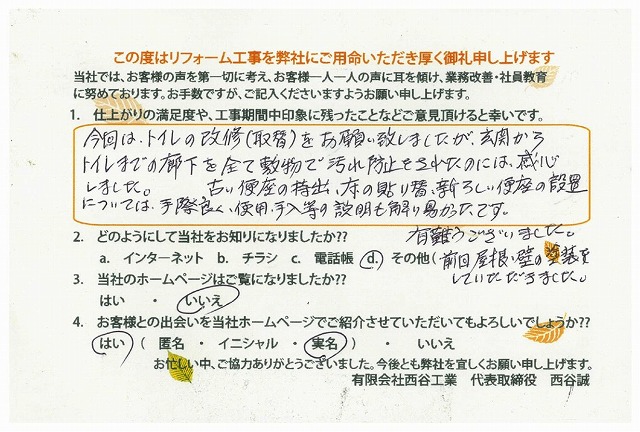 この度はリフォーム工事を弊社にご用命いただき厚く御礼申し上げます
当社では、お客様の声を第一切に考え、お客様一人一人の声に耳を傾け、業務改善・社員教育
に努めております。お手数ですが、ご記入くださいますようお願い申し上げます。
1. 仕上がりの満足度や、工事期間中印象に残ったことなどご意見頂けると幸いです。
今回は、トイレの改修(取替)をお願い致しましたが、玄関から
トイレまでの廊下を全て敷物で汚れ防止をされたのには、感心
しました。 古い便座の持出、床の貼り替、新らしい便座の設置
については、手際良く、使用、手入等の説明も解り易かったです。
有難うございました。
2. どのようにして当社をお知りになりましたか??
a. インターネット b. チラシ c. 電話帳 d. その他(前回屋根、壁の塗装を
していただきました。
3. 当社のホームページはご覧になりましたか??
はい ・ いいえ
4. お客様との出会いを当社ホームページでご紹介させていただいてもよろしいでしょうか??
はい ( 匿名 ・ イニシャル ・ 実名 ) ・ いいえ
お忙しい中、ご協力ありがとうございました。今後とも弊社を宜しくお願い申し上げます。
有限会社西谷工業 代表取締役 西谷誠